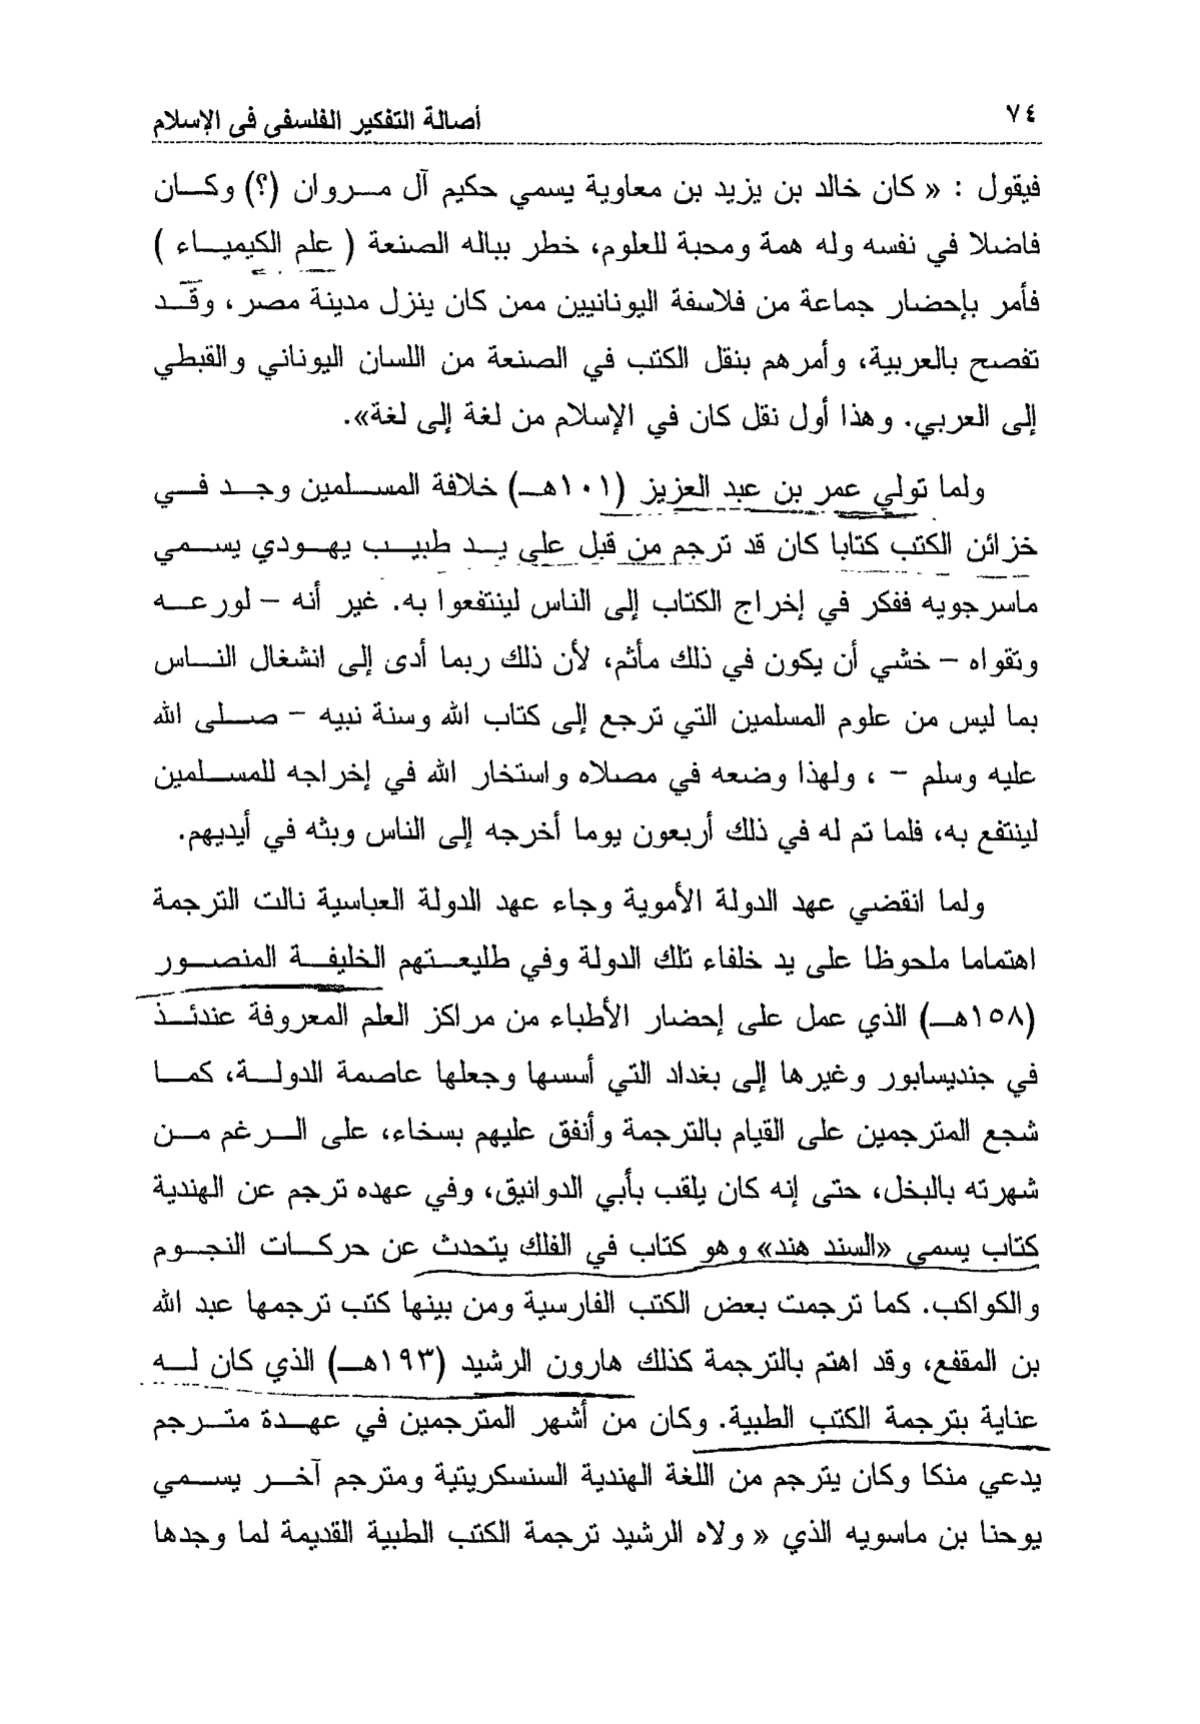 ٧٤
أصالة التفكير الفلسفى فى الإسلام
فيقول : « كان خالد بن يزيد بن معاوية يسمي حكيم آل مروان (؟) وكان
فاضلا في نفسه وله همة ومحبة للعلوم، خطر بباله الصنعة ( علم الكيمياء )
فأمر بإحضار جماعة من فلاسفة اليونانيين ممن كان ينزل مدينة مصر، وقد
تفصح بالعربية، وأمرهم بنقل الكتب في الصنعة من اللسان اليوناني والقبطي
إلى العربي. وهذا أول نقل كان في الإسلام من لغة إلى لغة».
ولما تولي عمر بن عبد العزيز (١٠١هـ) خلافة المسلمين وجد في
خزائن الكتب كتابا كان قد ترجم من قبل على يد طبيب يهودي يسمي
ماسرجويه ففكر في إخراج الكتاب إلى الناس لينتفعوا به. غير أنه – لورعه
وتقواه – خشي أن يكون في ذلك مأثم، لأن ذلك ربما أدى إلى انشغال الناس
بما ليس من علوم المسلمين التي ترجع إلى كتاب الله وسنة نبيه – صلى الله
عليه وسلم – ، ولهذا وضعه في مصلاه واستخار الله في إخراجه للمسلمين
لينتفع به، فلما تم له في ذلك أربعون يوما أخرجه إلى الناس وبثه في أيديهم.
ولما انقضي عهد الدولة الأموية وجاء عهد الدولة العباسية نالت الترجمة
اهتماما ملحوظا على يد خلفاء تلك الدولة وفي طليعتهم الخليفة المنصور
(١٥٨هـ) الذي عمل على إحضار الأطباء من مراكز العلم المعروفة عندئذ
في جنديسابور وغيرها إلى بغداد التي أسسها وجعلها عاصمة الدولة، كما
شجع المترجمين على القيام بالترجمة وأنفق عليهم بسخاء، على الرغم من
شهرته بالبخل، حتى إنه كان يلقب بأبي الدوانيق، وفي عهده ترجم عن الهندية
كتاب يسمي «السند هند» وهو كتاب في الفلك يتحدث عن حركات النجوم
والكواكب. كما ترجمت بعض الكتب الفارسية ومن بينها كتب ترجمها عبد الله
بن المقفع، وقد اهتم بالترجمة كذلك هارون الرشيد (١٩٣هـ) الذي كان له
عناية بترجمة الكتب الطبية. وكان من أشهر المترجمين في عهدة مترجم
يدعي منكا وكان يترجم من اللغة الهندية السنسكريتية ومترجم آخر يسمي
يوحنا بن ماسويه الذي « ولاه الرشيد ترجمة الكتب الطبية القديمة لما وجدها